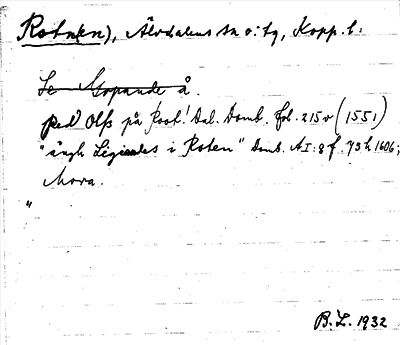 Rotn(en), Älvdalens sn o. tg, Kopp. l:
Se Mopande å.
ped Olss på Root! Dal. Domb. fol. 215 v (1551)
"ängh Ligiendes i Roten" Domb. AI:8 f. 73 h 1606;
Mora.
"
B.L. 1932